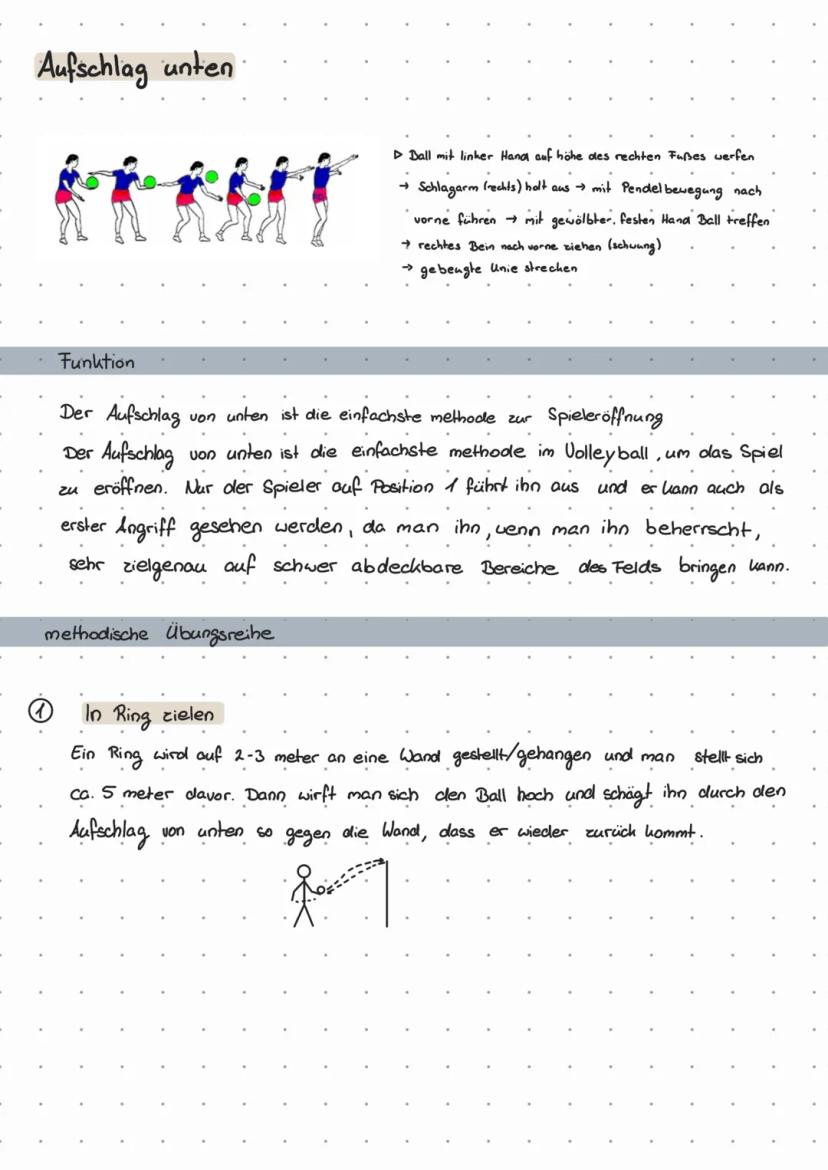 Aufschlag unten
▷ Ball mit linker Hand auf höhe des rechten Fußes werfen
→ Schlagarm (rechts) holt aus → mit Pendelbewegung nach
vorne führen → mit gewölbter, festen Hand Ball treffen
→ rechtes Bein nach vorne ziehen (schwung)
→ gebeugte Knie strecken
Funktion
Der Aufschlag von unten ist die einfachste methode zur Spieleröffnung
Der Aufschlag von unten ist die einfachste methode im Volleyball, um das Spiel
zu eröffnen. Nur der Spieler auf Position 1 führt ihn aus und er kann auch als
erster Angriff gesehen werden, da man ihn, wenn man ihn beherrscht,
sehr zielgenau auf schwer abdeckbare Bereiche des Felds bringen kann.
methodische Übungsreihe
① In Ring zielen
Ein Ring wird auf 2-3 meter an eine Wand gestellt/gehangen und man stellt sich
ca. 5 meter davor. Dann wirft man sich den Ball hoch und schägt ihn durch den
Aufschlag von unten so gegen die Wand, dass er wieder zurück kommt.